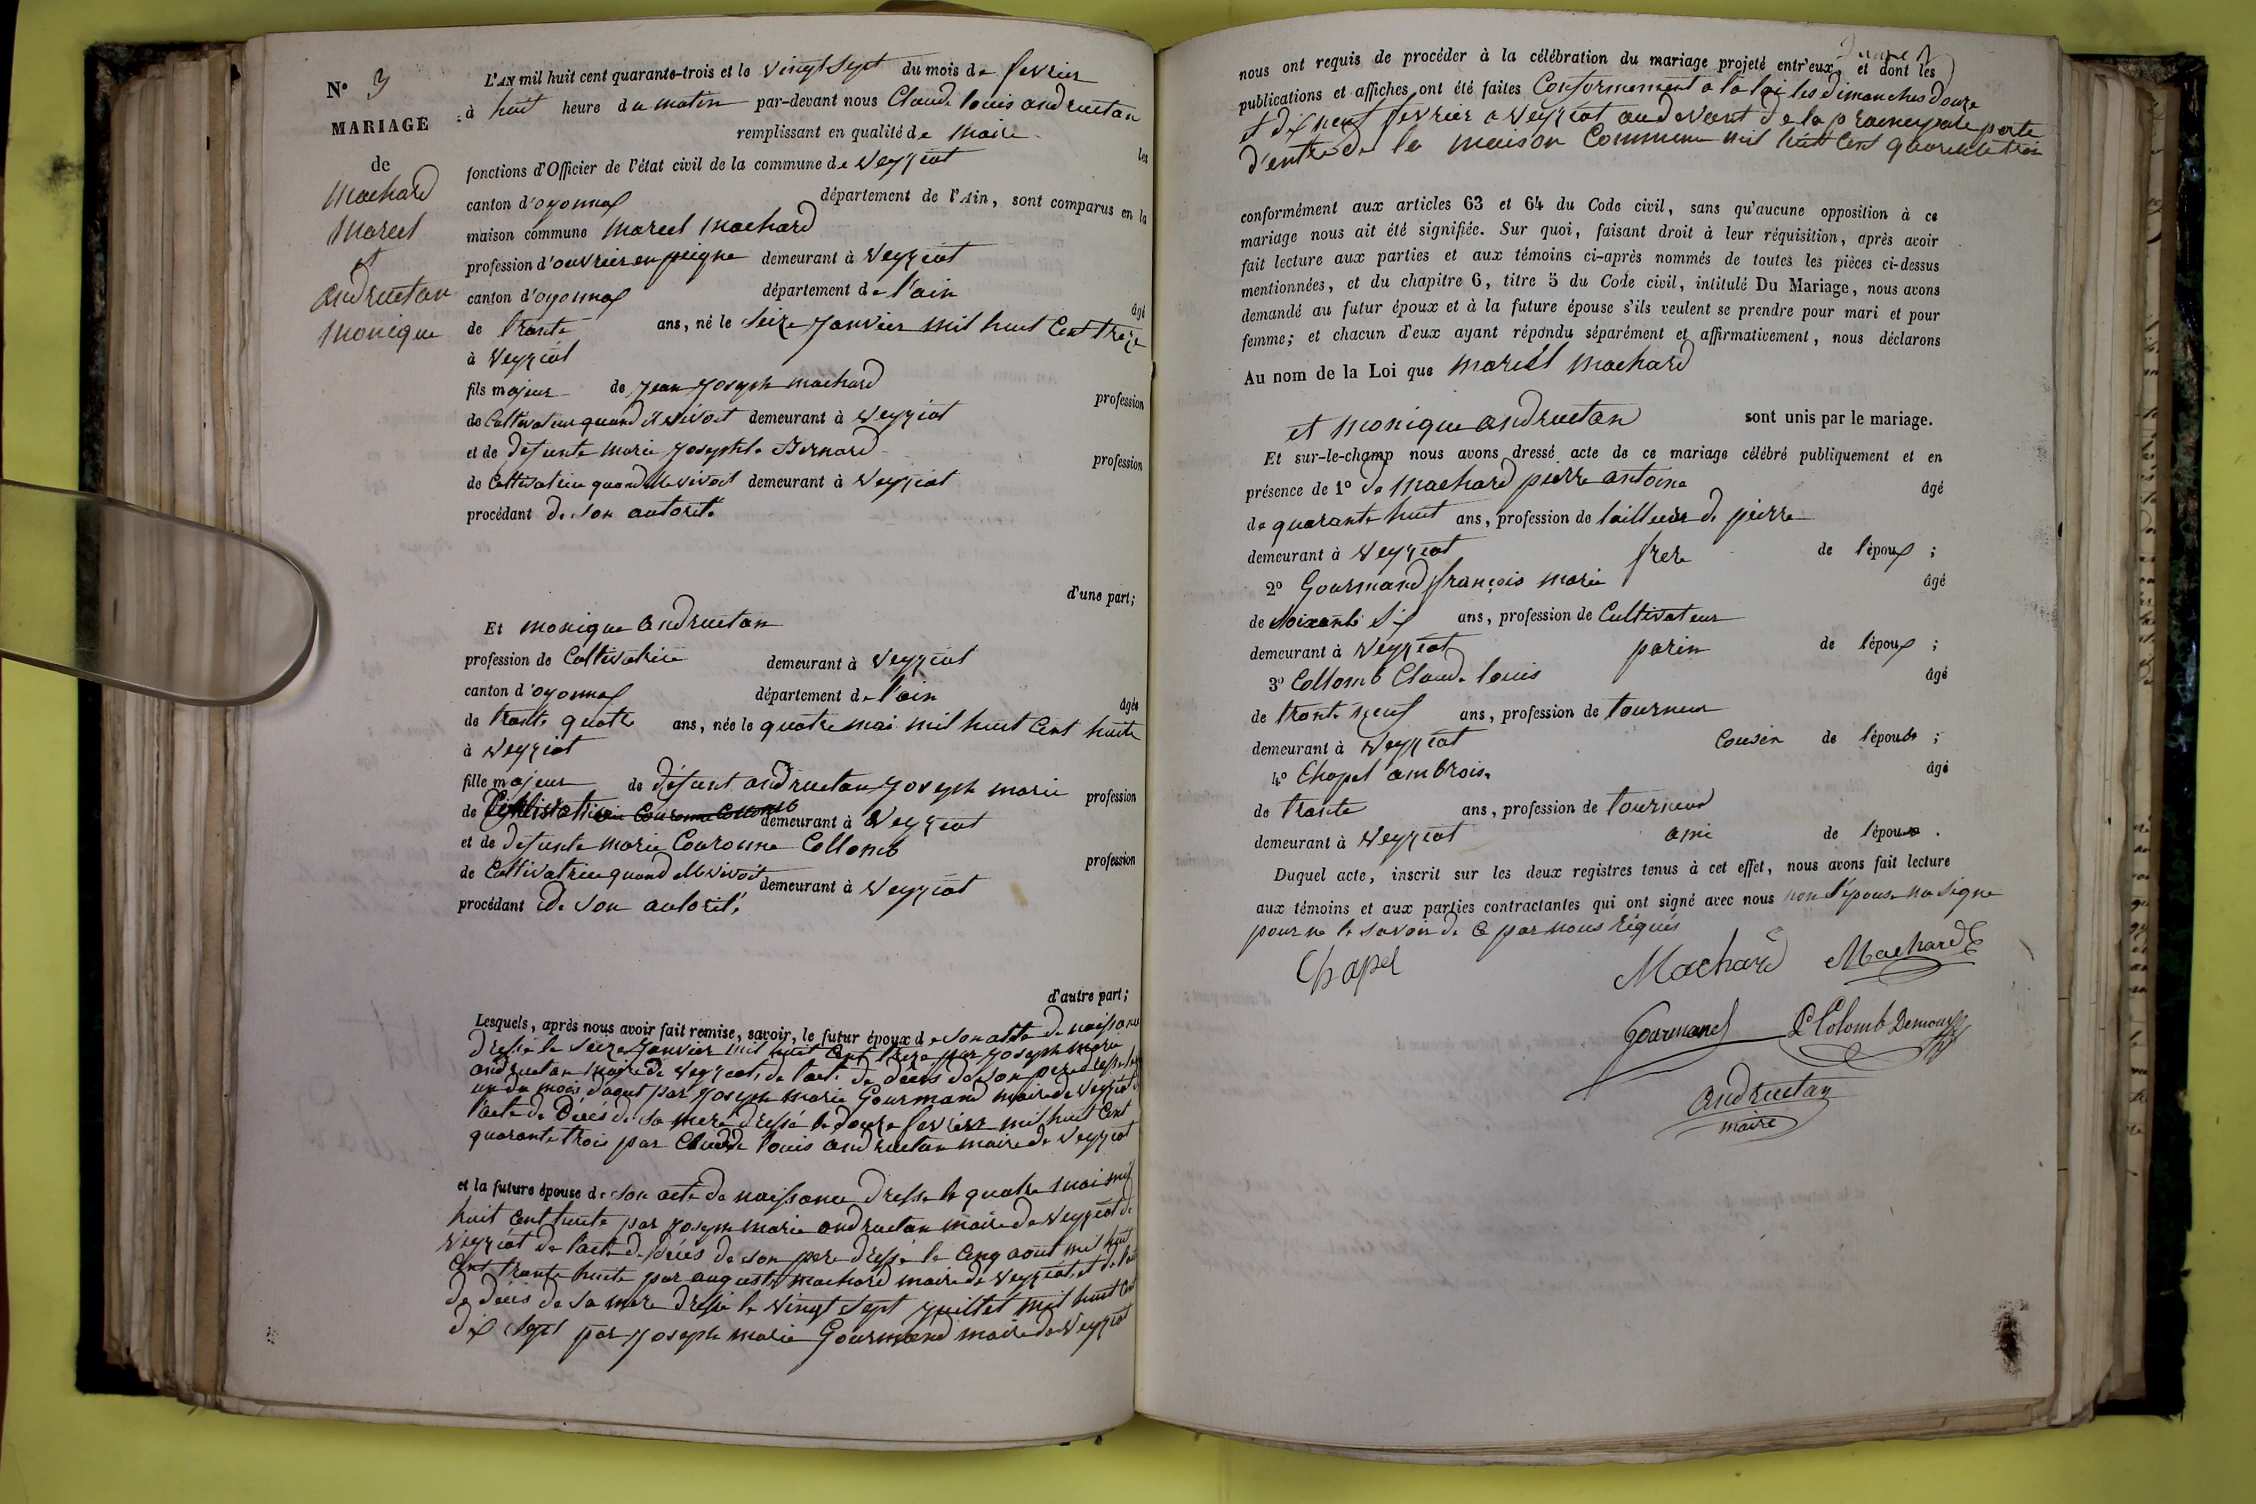 N° 3
MARIAGE
de
Machard
Marcel
et
andruetan
monique
L'AN mil huit cent quarante-trois et le vingt sept du mois de fevrier
à huit heure du matin par-devant nous Claude louis andruetan
remplissant en qualité de maire les
fonctions d'Officier de l'état civil de la commune de veyziat
canton d'oyonnax département de l'Ain, sont comparus en la
maison commune marcel machard
profession d'ouvrier en peigne demeurant à veyziat
canton d'oyonnax département de l'ain âgé
de trante ans, né le seize janvier mil huit cent treize
à veyziat
fils majeur de jean joseph machard profession
de Cultivateur quand il vivoit demeurant à veyziat
et de defunte marie josephte Bernard profession
de Cultivatrice quand elle vivoit demeurant à veyziat
procédant de son autorité
d'une part;
Et monique andruetan
profession de Cultivatrice demeurant à veyziat
canton d'oyonnax département de l'ain âgée
de trante quatre ans, née le quatre mai mil huit cent huite
à veyziat
fille majeur de défunt andruetan joseph marie profession
de demeurant à veyziat
et de defunte marie Couronne Collomb profession
de Cultivatrice quand elle vivoit demeurant à veyziat
procédant de son autorité
d'autre part;
Lesquels, après nous avoir fait remise, savoir, le futur époux de son acte de naissance
dressé le seize janvier mil huit cent treize par joseph marie
andruetan maire de veyziat, de l'acte de décès de son pere dressé le
un du mois d'aout par joseph marie Gourmand maire de veyziat
l'acte de Décès de sa mere dressé le douze fevrier mil huit cent
quarante trois par Claude louis andruetan maire de veyziat
et la future épouse de son acte de naissance dressé le quatre mai mil
huit cent huite par joseph marie andruetan maire de veyziat de
veyziat de l'acte de décès de son pere dressé le cinq août mil huit
cent trante huite par auguste machard maire de veyziat, et de l'acte
de décès de sa mere dressé le vingt sept juillet mil huit cent
dix sept par joseph marie Gourmand maire de veyziat
nous ont requis de procéder à la célébration du mariage projeté entr'eux, et dont les
publications et affiches ont été faites Conformement a la loi les dimanches douze
et dix neuf fevrier a veyziat au devant de la principale porte
d'entré de la maison Commune mil huit cent quarante trois
conformément aux articles 63 et 64 du Code civil, sans qu'aucune opposition à ce
mariage nous ait été signifiée. Sur quoi, faisant droit à leur réquisition, après avoir
fait lecture aux parties et aux témoins ci-après nommés de toutes les pièces ci-dessus
mentionnées, et du chapitre 6, titre 5 du Code civil, intitulé Du Mariage, nous avons
demandé au futur époux et à la future épouse s'ils veulent se prendre pour mari et pour
femme; et chacun d'eux ayant répondu séparément et affirmativement, nous déclarons
Au nom de la Loi que marcel machard
et monique andruetan sont unis par le mariage.
Et sur-le-champ nous avons dressé acte de ce mariage célébré publiquement et en
présence de 1° de machard pierre antoine âgé
de quarante huit ans, profession de tailleur de pierre
demeurant à veyziat frere de l'époux ;
2° Gourmand françois marie âgé
de soixante six ans, profession de Cultivateur
demeurant à veyziat parin de l'époux ;
3° Collomb Claude louis âgé
de trante neuf ans, profession de tourneur
demeurant à veyziat Cousin de l'épouse ;
4° Chapel ambroise âgé
de trante ans, profession de tourneur
demeurant à veyziat ami de l'épouse .
Duquel acte, inscrit sur les deux registres tenus à cet effet, nous avons fait lecture
aux témoins et aux parties contractantes qui ont signé avec nous non l'épouse ne signe
pour ne le savoir de ce par nous réquis
Chapel
Machard Machard
Gourmand Cl Colomb
andruetan
maire